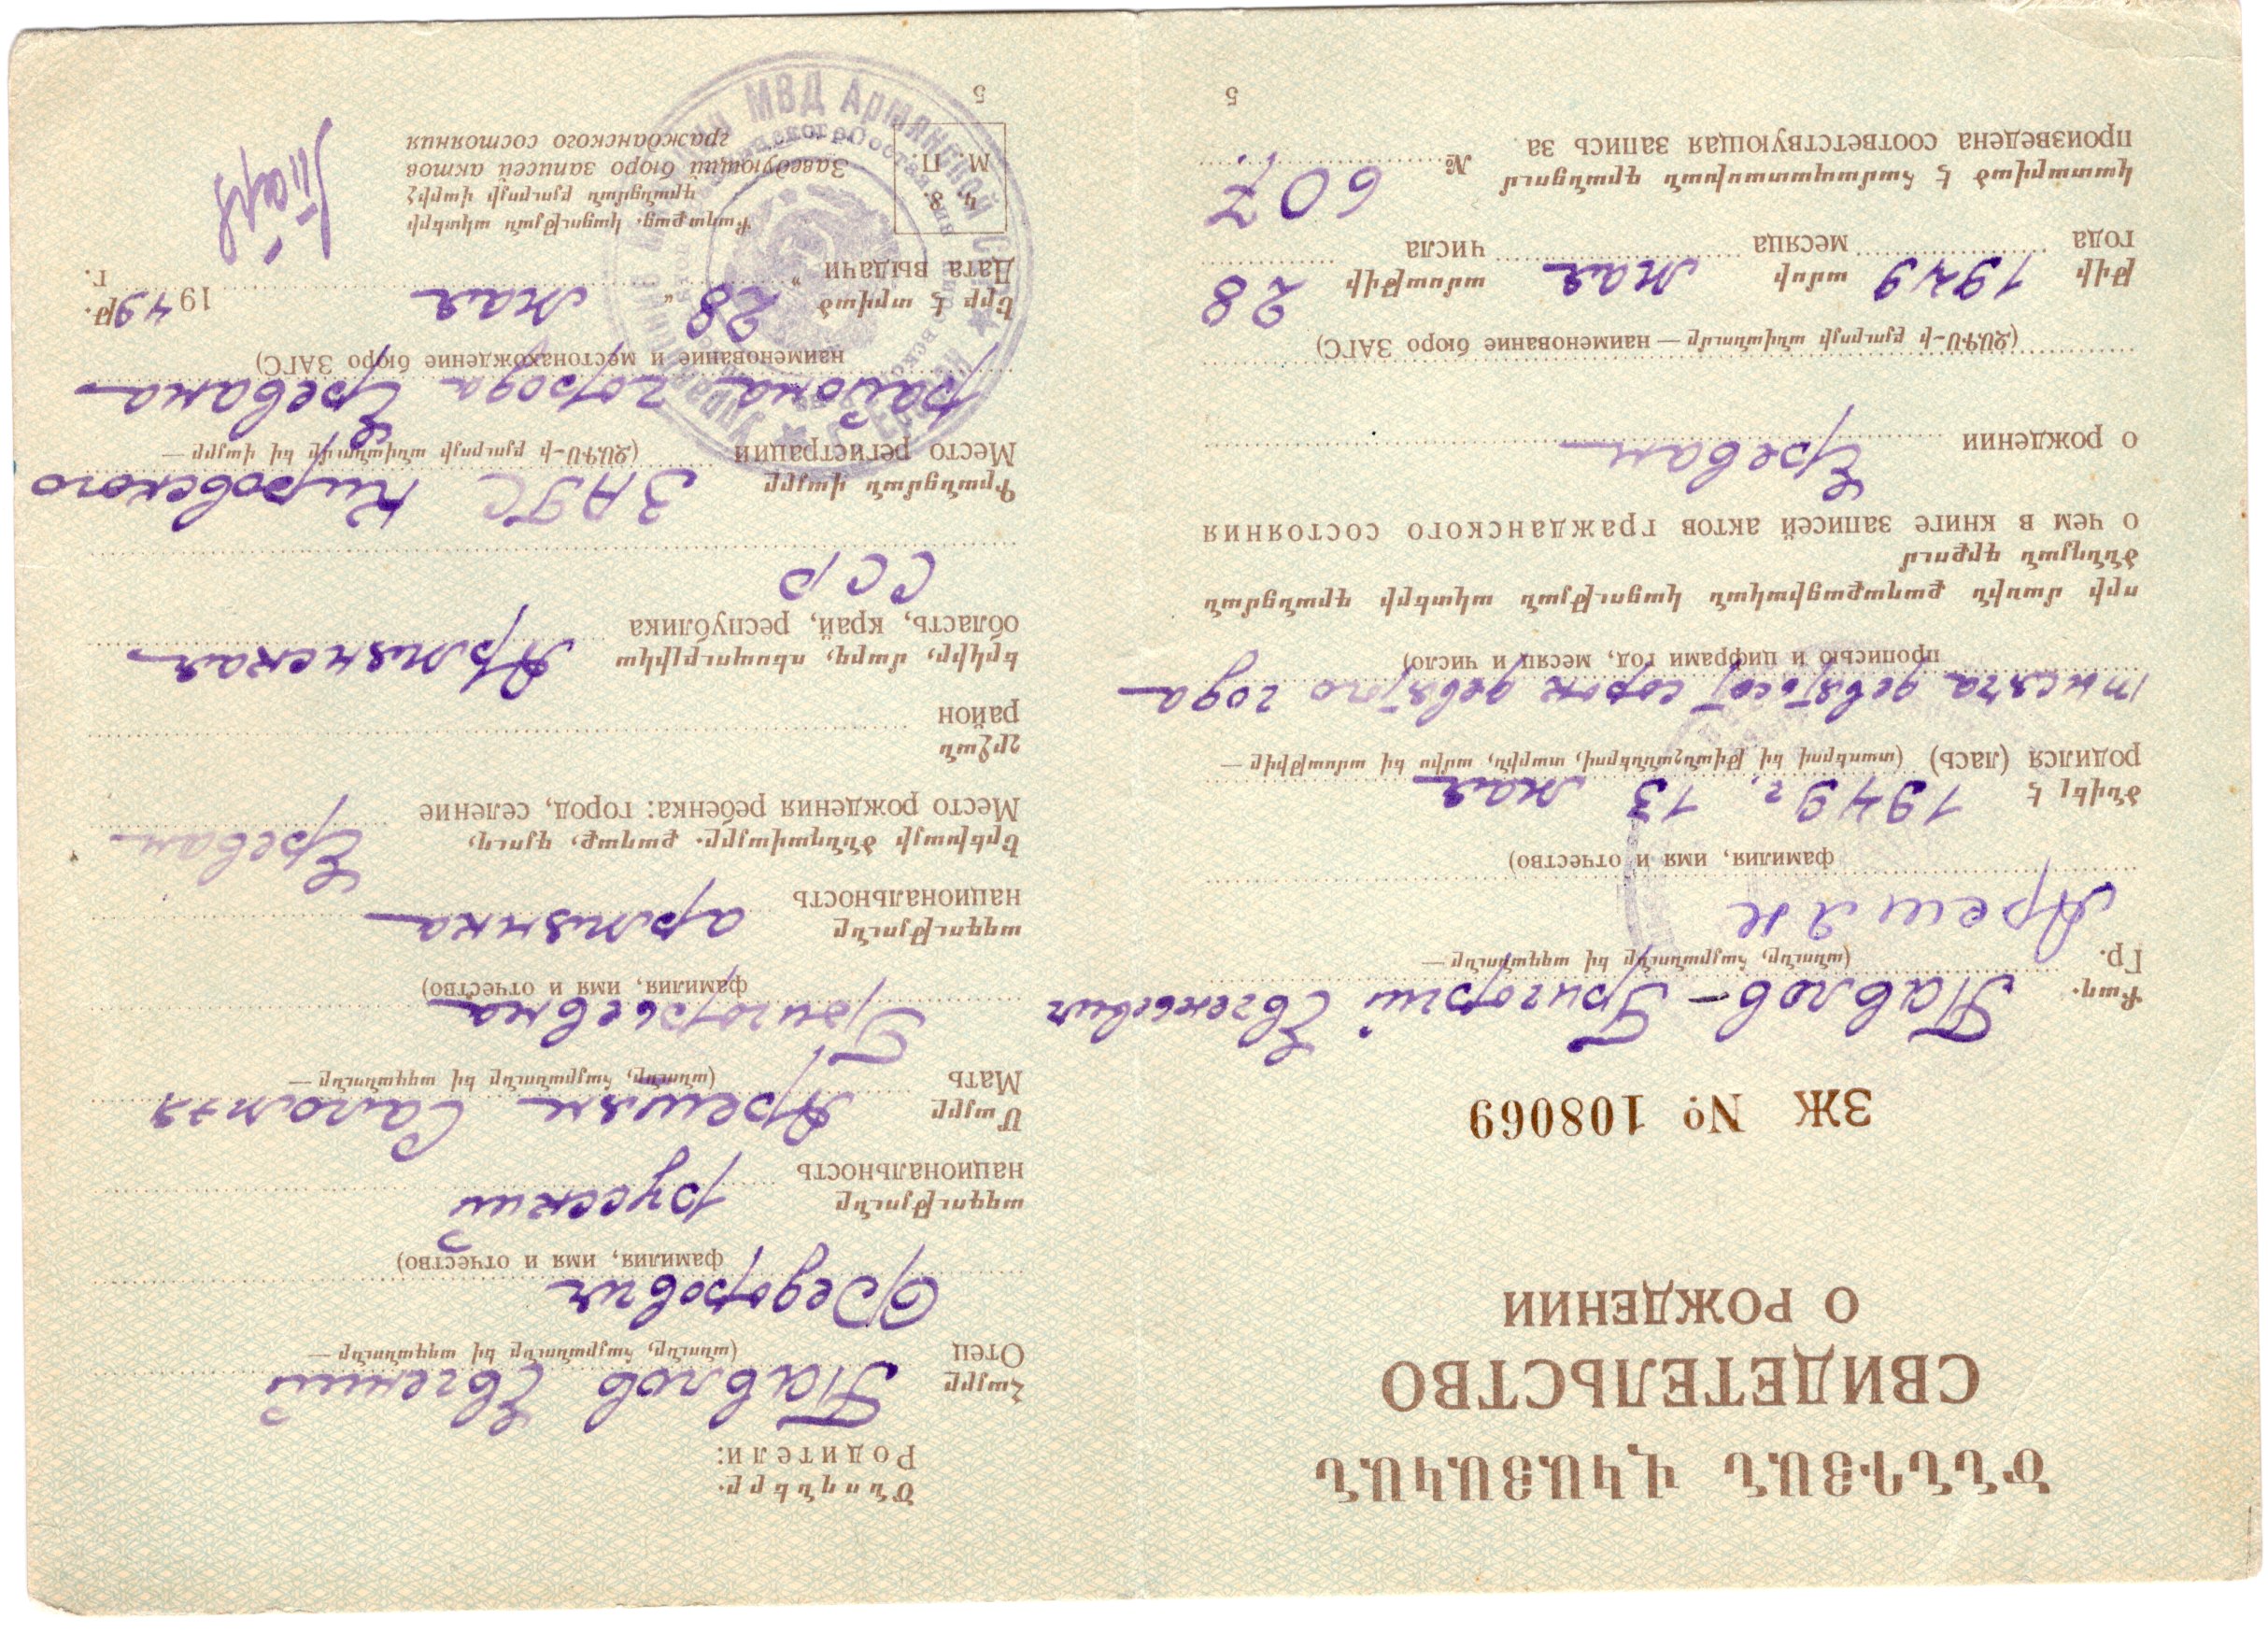 ԾՆՆԴՅԱՆ ՎԿԱՅԱԿԱՆ
СВИДЕТЕЛЬСТВО
О РОЖДЕНИИ
ЗЖ № 108069
Քաղ.
Гр. Павлов-Григорий Евгеньевич
(ազգանունը, հայրանունը եւ
Арешян
фамилия, имя и отчество)
ծնվել է
родился (лась) 1949 г. 13 мая
тысяча девятьсот сорок девятого года
прописью и цифрами год, месяц и число)
որի մասին քաղաքացիական կացության ակտերի գրանցման
ծննդյան գրքում
о чем в книге записей актов гражданского состояния
о рождении Ереван
(ԶԱԳՍ-ի բյուրոյի անվանումը — наименование бюро ЗАГС)
թվի 1949 ամսի мая ամսաթվի 28
года месяца числа
կատարված է համապատասխան գրանցում
произведена соответствующая запись за № 607.
5
Ծնողները.
Родители:
Հայրը
Отец Павлов Евгений
Федорович
фамилия, имя и отчество)
ազգությունը
национальность русский
Մայրը
Мать Арешян Саломэя
Григорьевна
фамилия, имя и отчество)
ազգությունը
национальность армянка
Երեխայի ծննդավայրը. քաղաք, գյուղ,
Место рождения ребенка: город, селение Ереван
շրջան
район
երկիր, մարզ, ռեսպուբլիկա
область, край, республика Армянская
ССР
Գրանցման վայրը
Место регистрации ЗАГС Кировского
(ԶԱԳՍ-ի բյուրոյի անվանումը եւ վայրը —
района города Еревана
наименование и местонахождение бюро ЗАГС)
Երբ է տրված
Дата выдачи „28“ мая 1949 թ.
г.
Կ. Տ.
М. П.
Քաղաքաց. կացության ակտերի
գրանցման բյուրոյի վարիչ
Заведующий бюро записей актов
гражданского состояния
5